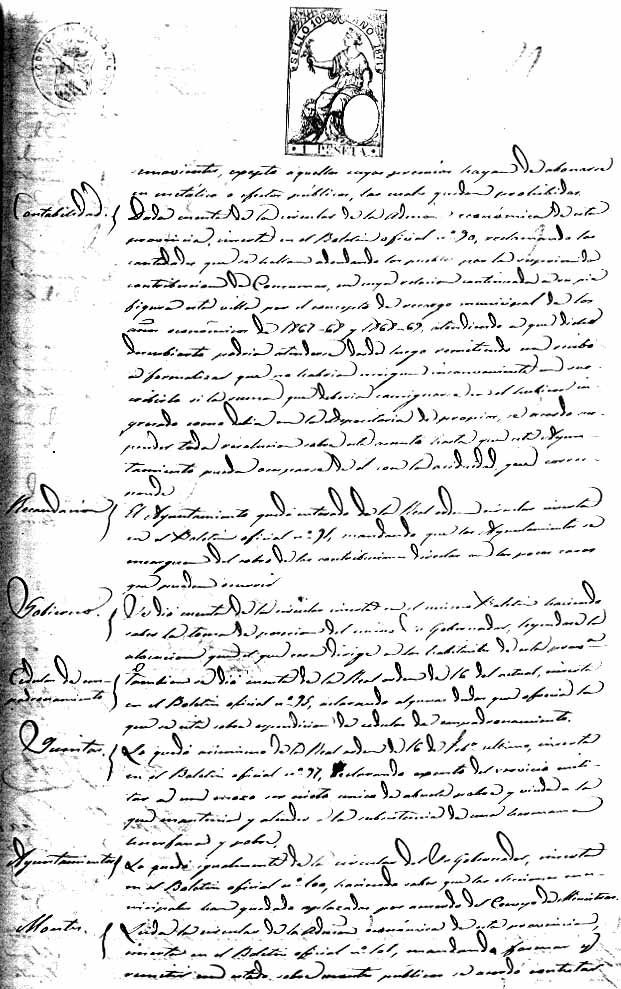 SELLO 10º AÑO 1871
1 PESETA.
movientes, escepto aquellas cuyos premios hayan de abonarse
en metálico o efectos públicos, las cuales quedan prohibidas.
Contabilidad. Dada cuenta de la circular de la Admon económica de esta
provincia, inserta en el Boletin oficial nº 90, reclamando las
cantidades que se hallan adeudando los pueblos por la
contribucion de Consumos, en cuya relacion continuada a su pie
figura esta villa por el concepto de recargo municipal de los
años económicos de 1867-68 y 1868-69, atendiendo a que dicho
descubierto podria atenderse desde luego remitiendo un recibo
a formalizar que no habria ningun inconveniente en
si la suma que deberia consignarse en el hubiese in
gresado como debia en la depositaria de propios, se acordo sus
pender toda resolucion sobre este asunto hasta que este Ayun-
tamiento pueda ocuparse de el con la actividad que corres-
ponde
Recaudacion El Ayuntamiento quedó enterado de la Real orden circular inserta
en el Boletin oficial nº 91, mandando que los Ayuntamientos se
encarguen del cobro de las contribuciones directas en los pocos casos
que puedan ocurrir
Gobierno. Se dió cuenta de la circular inserta en el mismo Boletin haciendo
saber la toma de posesion del mismo Sr Gobernador, leyendose la
alocucion que el que cesa dirige a los habitantes de esta provª
Cedula de em-
padronamiento Tambien se dió cuenta de la Real orden de 16 del actual, inserta
en el Boletin oficial nº 95, aclarando algunas dudas que ofrecia la
que se cita sobre espendicion de cedulas de empadronamiento.
Quintas. Lo quedó asimismo de la Real orden de 16 de Febº ultimo, inserta
en el Boletin oficial nº 97, declarando exento del servicio mili-
tar a un mozo nieto unico de abuela pobre y viuda a la
que mantenia y atender a la subsistencia de una hermana
huerfana y pobre.
Ayuntamientos Lo quedó igualmente de la circular del Sr Gobernador, inserta
en el Boletin oficial nº 100, haciendo saber que las elecciones mu-
nicipales han quedado aplazadas por acuerdo del Consejo de Ministros.
Montes. Leida la circular de la Admon económica de esta provincia,
inserta en el Boletin oficial nº 101, mandando formar y
remitir un estado sobre montes públicos se acordó contestar